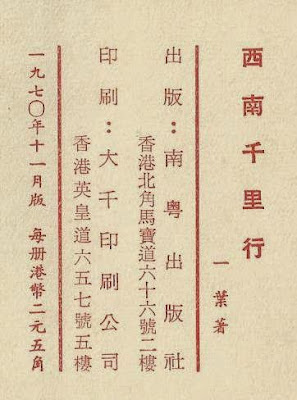 西南千里行
一葉著
出版：南粵出版社
香港北角馬寶道六十六號二樓
印刷：大千印刷公司
香港英皇道六五七號五樓
一九七〇年十一月版　每册港幣二元五角